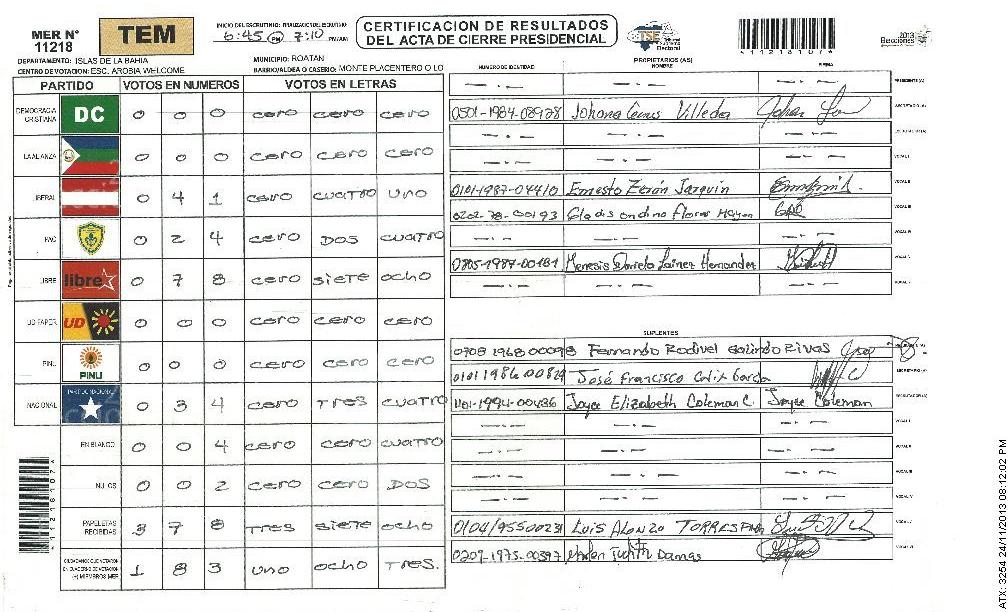 MER N° 11218
TEM
INICIO DEL ESCRUTINIO: FINALIZACION DEL ESCRUTINIO
6:45 PM 7:10 PM/AM
CERTIFICACION DE RESULTADOS
DEL ACTA DE CIERRE PRESIDENCIAL
TSE Tribunal Supremo Electoral
*11218107*
2013 Elecciones
DEPARTAMENTO: ISLAS DE LA BAHIA
MUNICIPIO: ROATAN
CENTRO DE VOTACION: ESC. AROBIA WELCOME
BARRIO/ALDEA O CASERIO: MONTE PLACENTERO O LO
PARTIDO VOTOS EN NUMEROS VOTOS EN LETRAS
DEMOCRACIA CRISTIANA DC 0 0 0 cero cero cero
LA ALIANZA 0 0 0 cero cero cero
LIBERAL 0 4 1 cero cuatro uno
PAC 0 2 4 cero DOS cuatro
LIBRE libre 0 7 8 cero siete ocho
UD FAPER UD 0 0 0 cero cero cero
PINU PINU 0 0 0 cero cero cero
NACIONAL PARTIDO NACIONAL 0 3 4 cero Tres cuatro
EN BLANCO 0 0 4 cero cero cuatro
NULOS 0 0 2 cero cero DOS
PAPELETAS RECIBIDAS 3 7 8 Tres siete ocho
CIUDADANOS QUE VOTARON EN CUADERNO DE VOTACION (+) MIEMBROS MER 1 8 3 uno ocho Tres.
*11218107*
NUMERO DE IDENTIDAD PROPIETARIOS (AS) NOMBRE FIRMA
PRESIDENTE (A)
0501-1984-08928 Villeda SECRETARIO (A)
ESCRUTADOR (A)
VOCAL I
0101-1987-04410 Ernesto Zerón Jarquin VOCAL II
0202-78-00193 Gladis ondina Flores VOCAL III
VOCAL IV
0805-1987-00181 Lainez Hernandez VOCAL V
SUPLENTES
0708 1968 00098 Fernando Rodivel Galindo Rivas
0101 1986 00829 José Francisco Calix Garcia SECRETARIO (A)
1101-1994-00436 Joyce Elizabeth Coleman C. Joyce Coleman ESCRUTADOR (A)
VOCAL I
VOCAL II
VOCAL III
VOCAL IV
0104199500231 LUIS ALONZO TORRES VOCAL V
0209-1975-00397 Judith Damas VOCAL VI
ATX: 3254 24/11/2013 08:12:02 PM